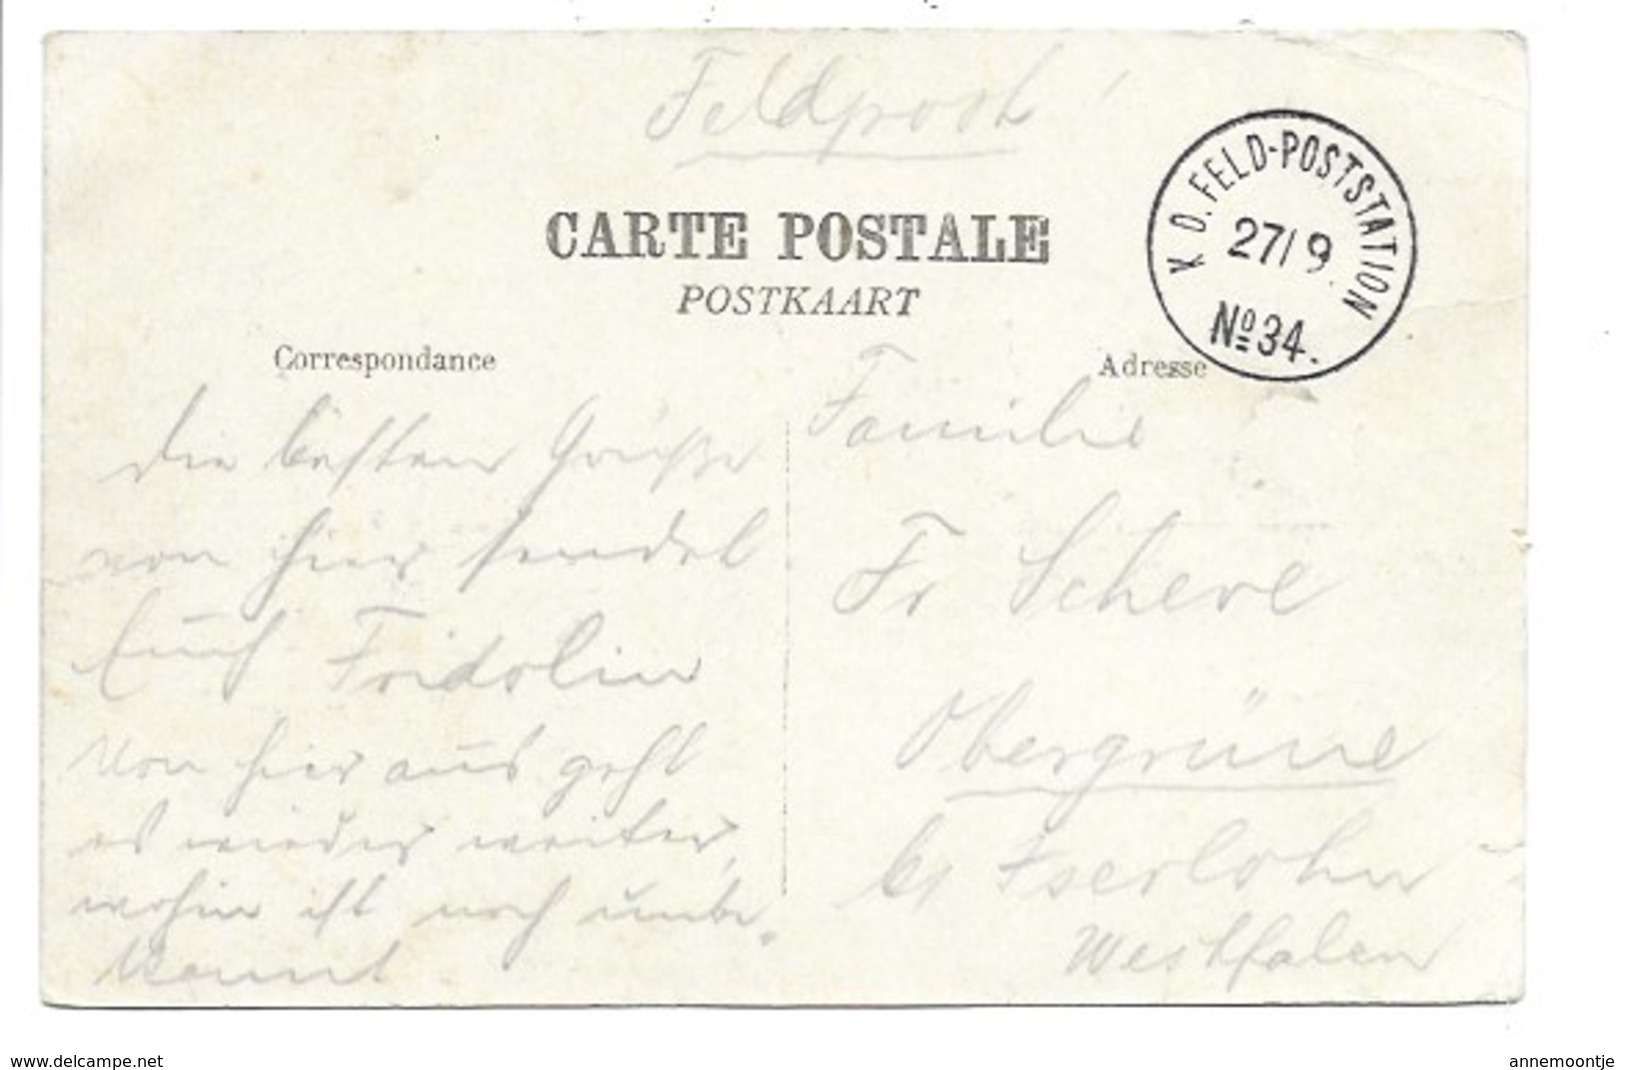 Feldpost
CARTE POSTALE
POSTKAART
K D. FELD-POSTSTATION
27/9
Nº 34.
Correspondance
Adresse
Die besten Grüße
von hier sendet
Euch Fridolin
Von hier aus geht
es wieder weiter,
wohin ist noch unbe-
kannt
Familie
Fr Scheve
Obergrüne
b/ Iserlohn
Westfalen
www.delcampe.net
annemoontje